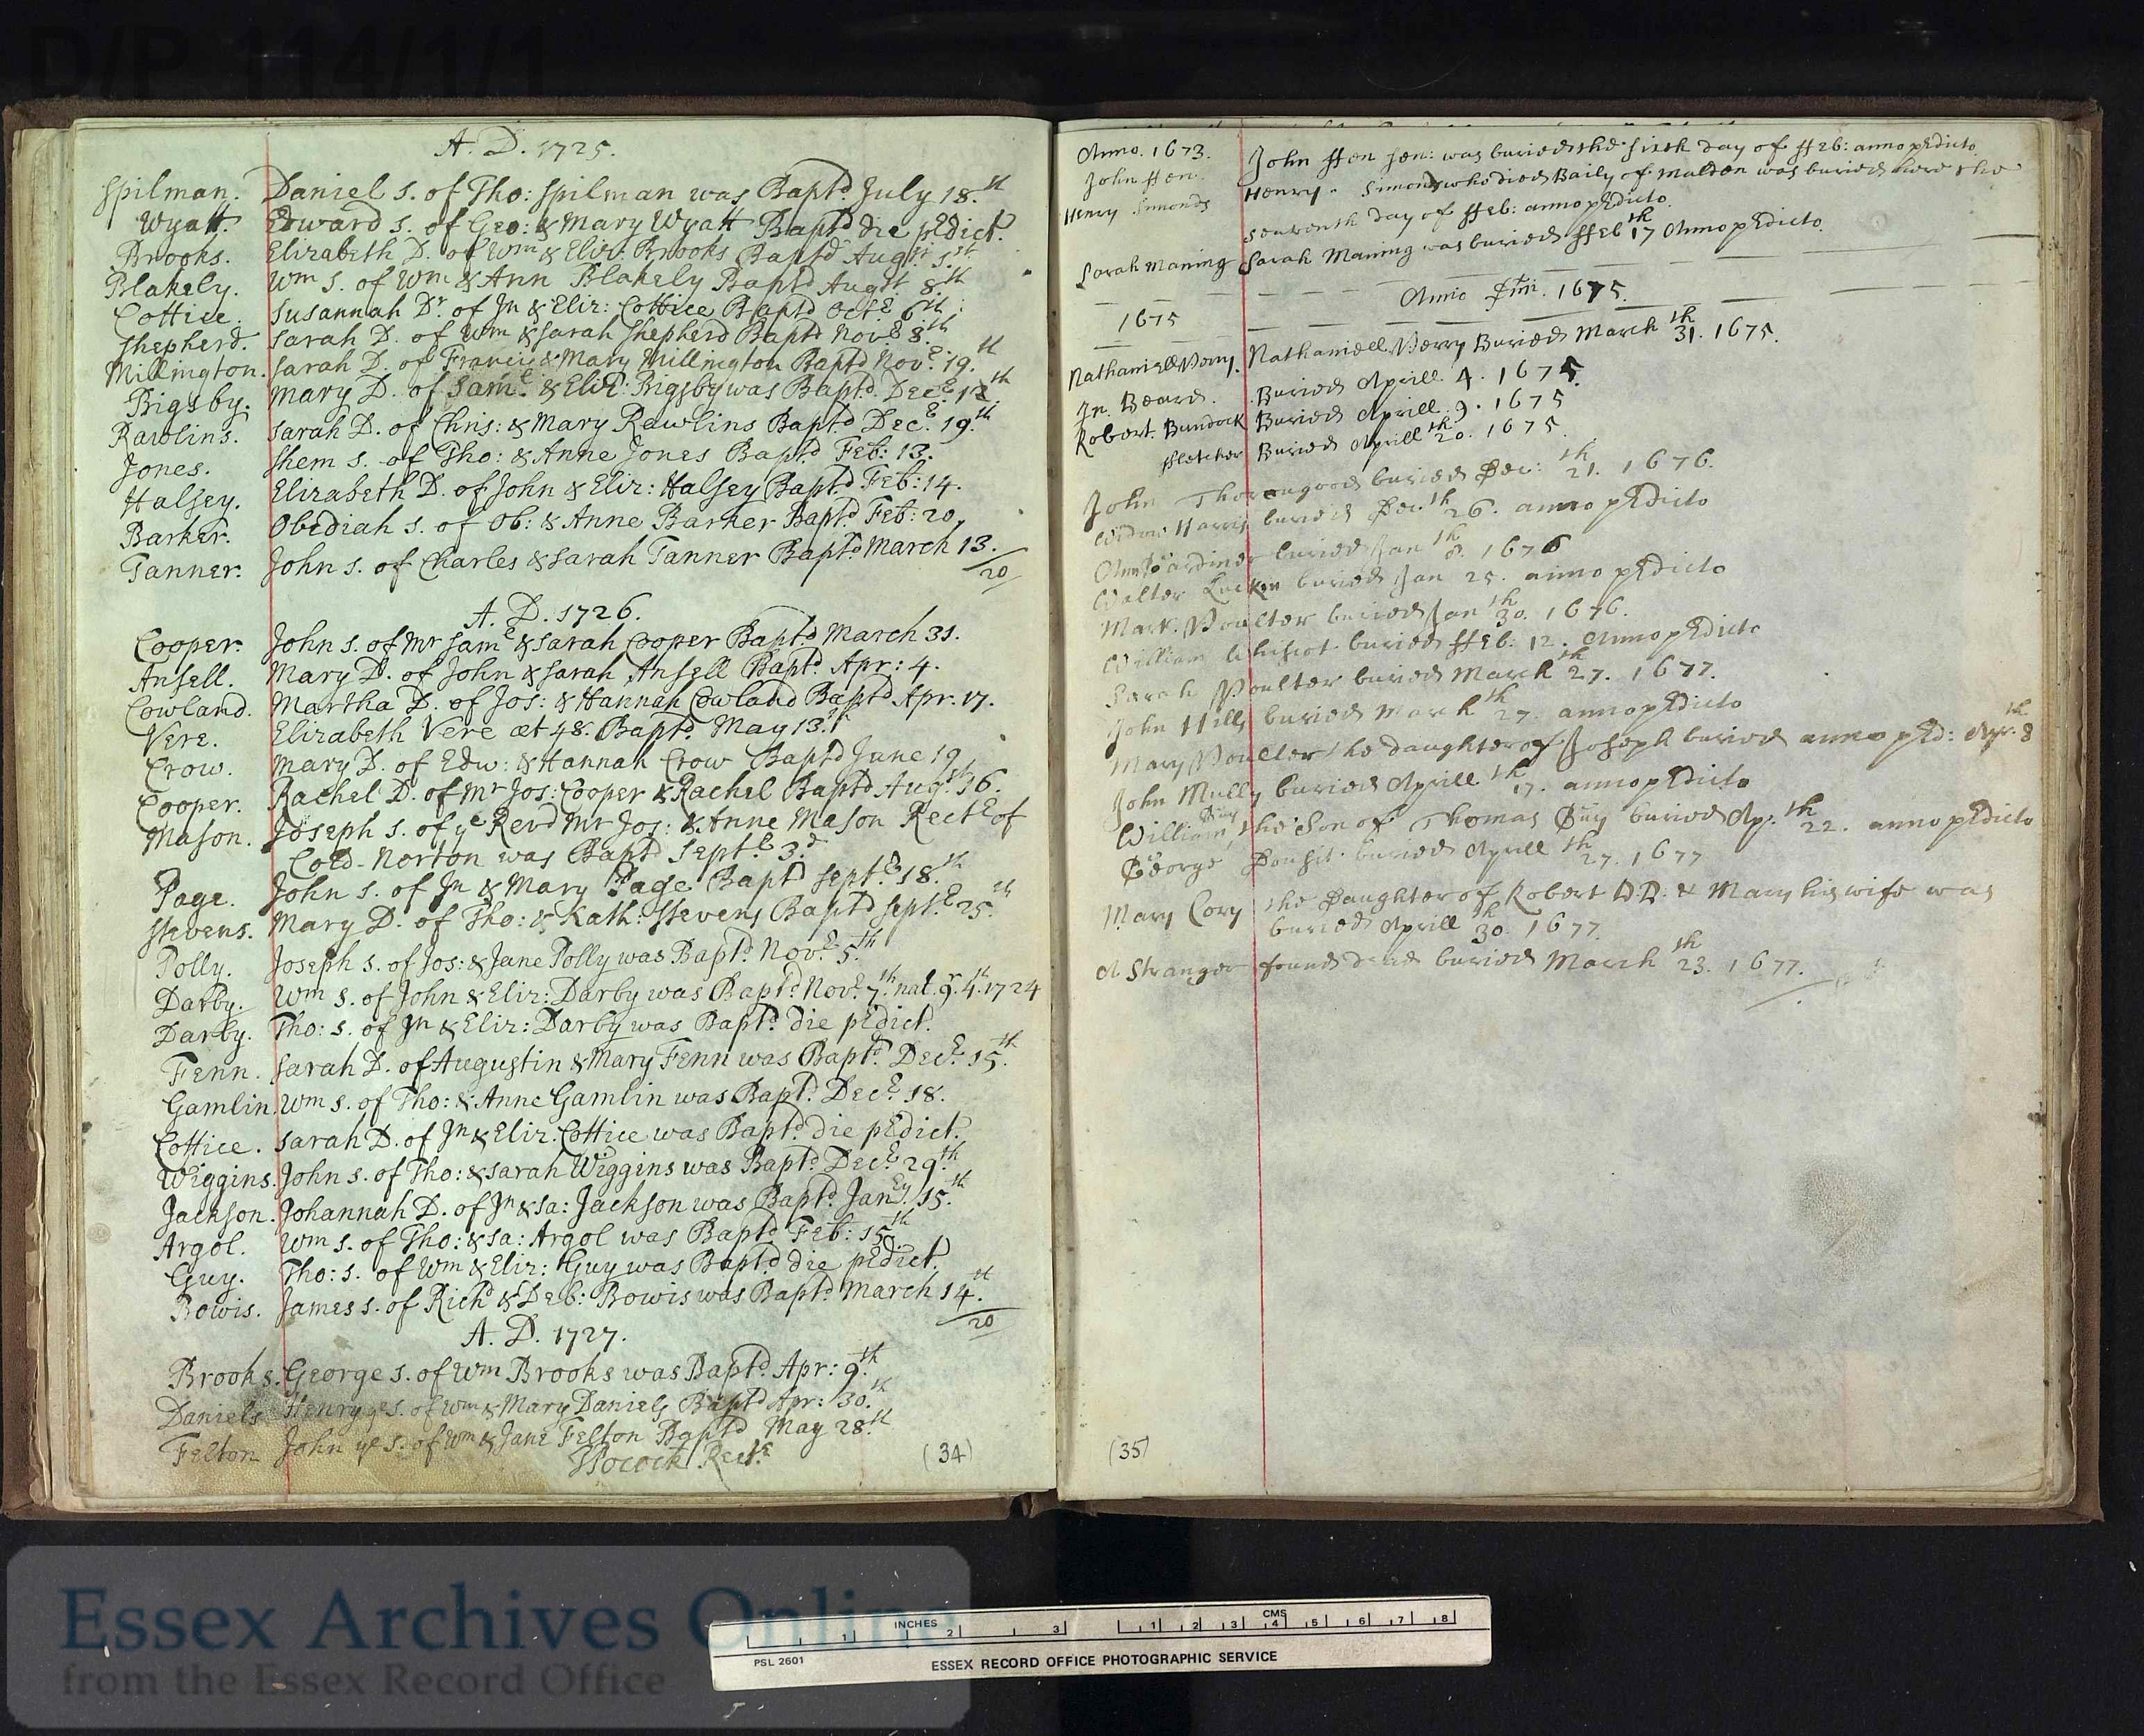 D/P 114/1/1
A. D. 1725.
Spilman. Daniel s. of Tho: Spilman was Bapt.d July 18.th
Wyatt. Edward s. of Geo: & Mary Wyatt Bapt.d die pdict.
Brooks. Elizabeth D. of Wm & Eliz: Brooks Bapt.d Aug.st 1.st
Blakely. Wm s. of Wm & Ann Blakely Bapt.d Aug.st 8.th
Cottice. Susannah Dr. of Jn & Eliz: Cottice Bapt.d Oct.r 6.th
Shepherd. Sarah D. of Wm & Sarah Shepherd Bapt.d Nov.r 8.th
Millington. Sarah D. of Francis & Mary Millington Bapt.d Nov.r 19.th
Bigsby. Mary D. of Sam.l & Eliz: Bigsby was Bapt.d Dec.r 12.th
Rawlins. Sarah D. of Chris: & Mary Rawlins Bapt.d Dec.r 19.th
Jones. Shem s. of Tho: & Anne Jones Bapt.d Feb: 13.
Halsey. Elizabeth D. of John & Eliz: Halsey Bapt.d Feb: 14.
Barker. Obediah s. of Ob: & Anne Barker Bapt.d Feb: 20.
Tanner. John s. of Charles & Sarah Tanner Bapt.d March 13.
20
A. D. 1726.
Cooper. John s. of Mr Sam.l & Sarah Cooper Bapt.d March 31.
Ansell. Mary D. of John & Sarah Ansell Bapt.d Apr: 4.
Cowland. Martha D. of Jos: & Hannah Cowland Bapt.d Apr. 17.
Vere. Elizabeth Vere æt 48. Bapt.d May 13.th
Crow. Mary D. of Edw: & Hannah Crow Bapt.d June 19.
Cooper. Rachel D. of Mr Jos: Cooper & Rachel Bapt.d Aug.st 16.
Mason. Joseph s. of ye Revd Mr Jos: & Anne Mason Rect.r of
Cold-Norton was Bapt.d Sept.r 3.d
Page. John s. of Jn & Mary Page Bapt.d Sept.r 18.th
Stevens. Mary D. of Tho: & Kath: Stevens Bapt.d Sept.r 25.th
Polly. Joseph s. of Jos: & Jane Polly was Bapt.d Nov.r 5.th
Darby. Wm s. of John & Eliz: Darby was Bapt.d Nov.r 7.th nat. 9.r 4.th 1724
Darby. Tho: s. of Jn & Eliz: Darby was Bapt.d die pdict.
Fenn. Sarah D. of Augustin & Mary Fenn was Bapt.d Dec.r 15.th
Gamlin. Wm s. of Tho: & Anne Gamlin was Bapt.d Dec.r 18.
Cottice. Sarah D. of Jn & Eliz. Cottice was Bapt.d die pdict.
Wiggins. John s. of Tho: & Sarah Wiggins was Bapt.d Dec.r 29.th
Jackson. Johannah D. of Jn & Sa: Jackson was Bapt.d Jan.ry 15.th
Argol. Wm s. of Tho: & Sa: Argol was Bapt.d Feb: 15.th
Guy. Tho: s. of Wm & Eliz: Guy was Bapt.d die pdict.
Bowis. James s. of Rich.d & Deb: Bowis was Bapt.d March 14.th
20
A. D. 1727.
Brooks. George s. of Wm Brooks was Bapt.d Apr: 9.th
Daniels Henry ye s. of Wm & Mary Daniels Bapt.d Apr: 30.th
Felton John ye s. of Wm & Jane Felton Bapt.d May 28.th
Pocock Rect.r
(34)
Anno. 1673.
John Hen. John Hen sen: was buried the sixth day of ffeb: anno pdicto
Henry Simonds Henry Simonds who died Baily of Maldon was buried here the
seaventh day of ffeb: anno pdicto.
Sarah Maning Sarah Maning was buried ffeb 17th Anno pdicto.
Anno Dni. 1675.
1675
Nathaniell Perry. Nathaniell Perry Buried March 31.th 1675.
Jn. Beard. Buried Aprill 4. 1675.
Robert. Burdock Buried Aprill. 9. 1675
Fletcher Buried Aprill 20.th 1675.
John Thorowgood buried Dec: 21.th 1676.
Widow Harris buried Dec. 26.th anno pdicto
Gardiner buried Jan 8.th 1676
Walter buried Jan 25. anno pdicto
Mark. Poulter buried Jan 30.th 1676.
William buried ffeb: 12. Anno pdicto
Sarah Poulter buried March 27.th 1677.
John Hills buried March 27.th anno pdicto
Mary Poulter the daughter of Joseph buried anno pd: Apr. 8th
John Mully buried Aprill 17.th anno pdicto
William Guy the Son of Thomas Guy buried Ap. 22.th anno pdicto
George buried Aprill 27.th 1677
Mary Cory the Daughter of Robert DD: & Mary his wife was
buried Aprill 30.th 1677.
A Stranger found dead buried March 23.th 1677.
(35)
Essex Archives Online
from the Essex Record Office
INCHES 1 2 3 CMS 1 2 3 4 5 6 7 8
PSL 2601 ESSEX RECORD OFFICE PHOTOGRAPHIC SERVICE